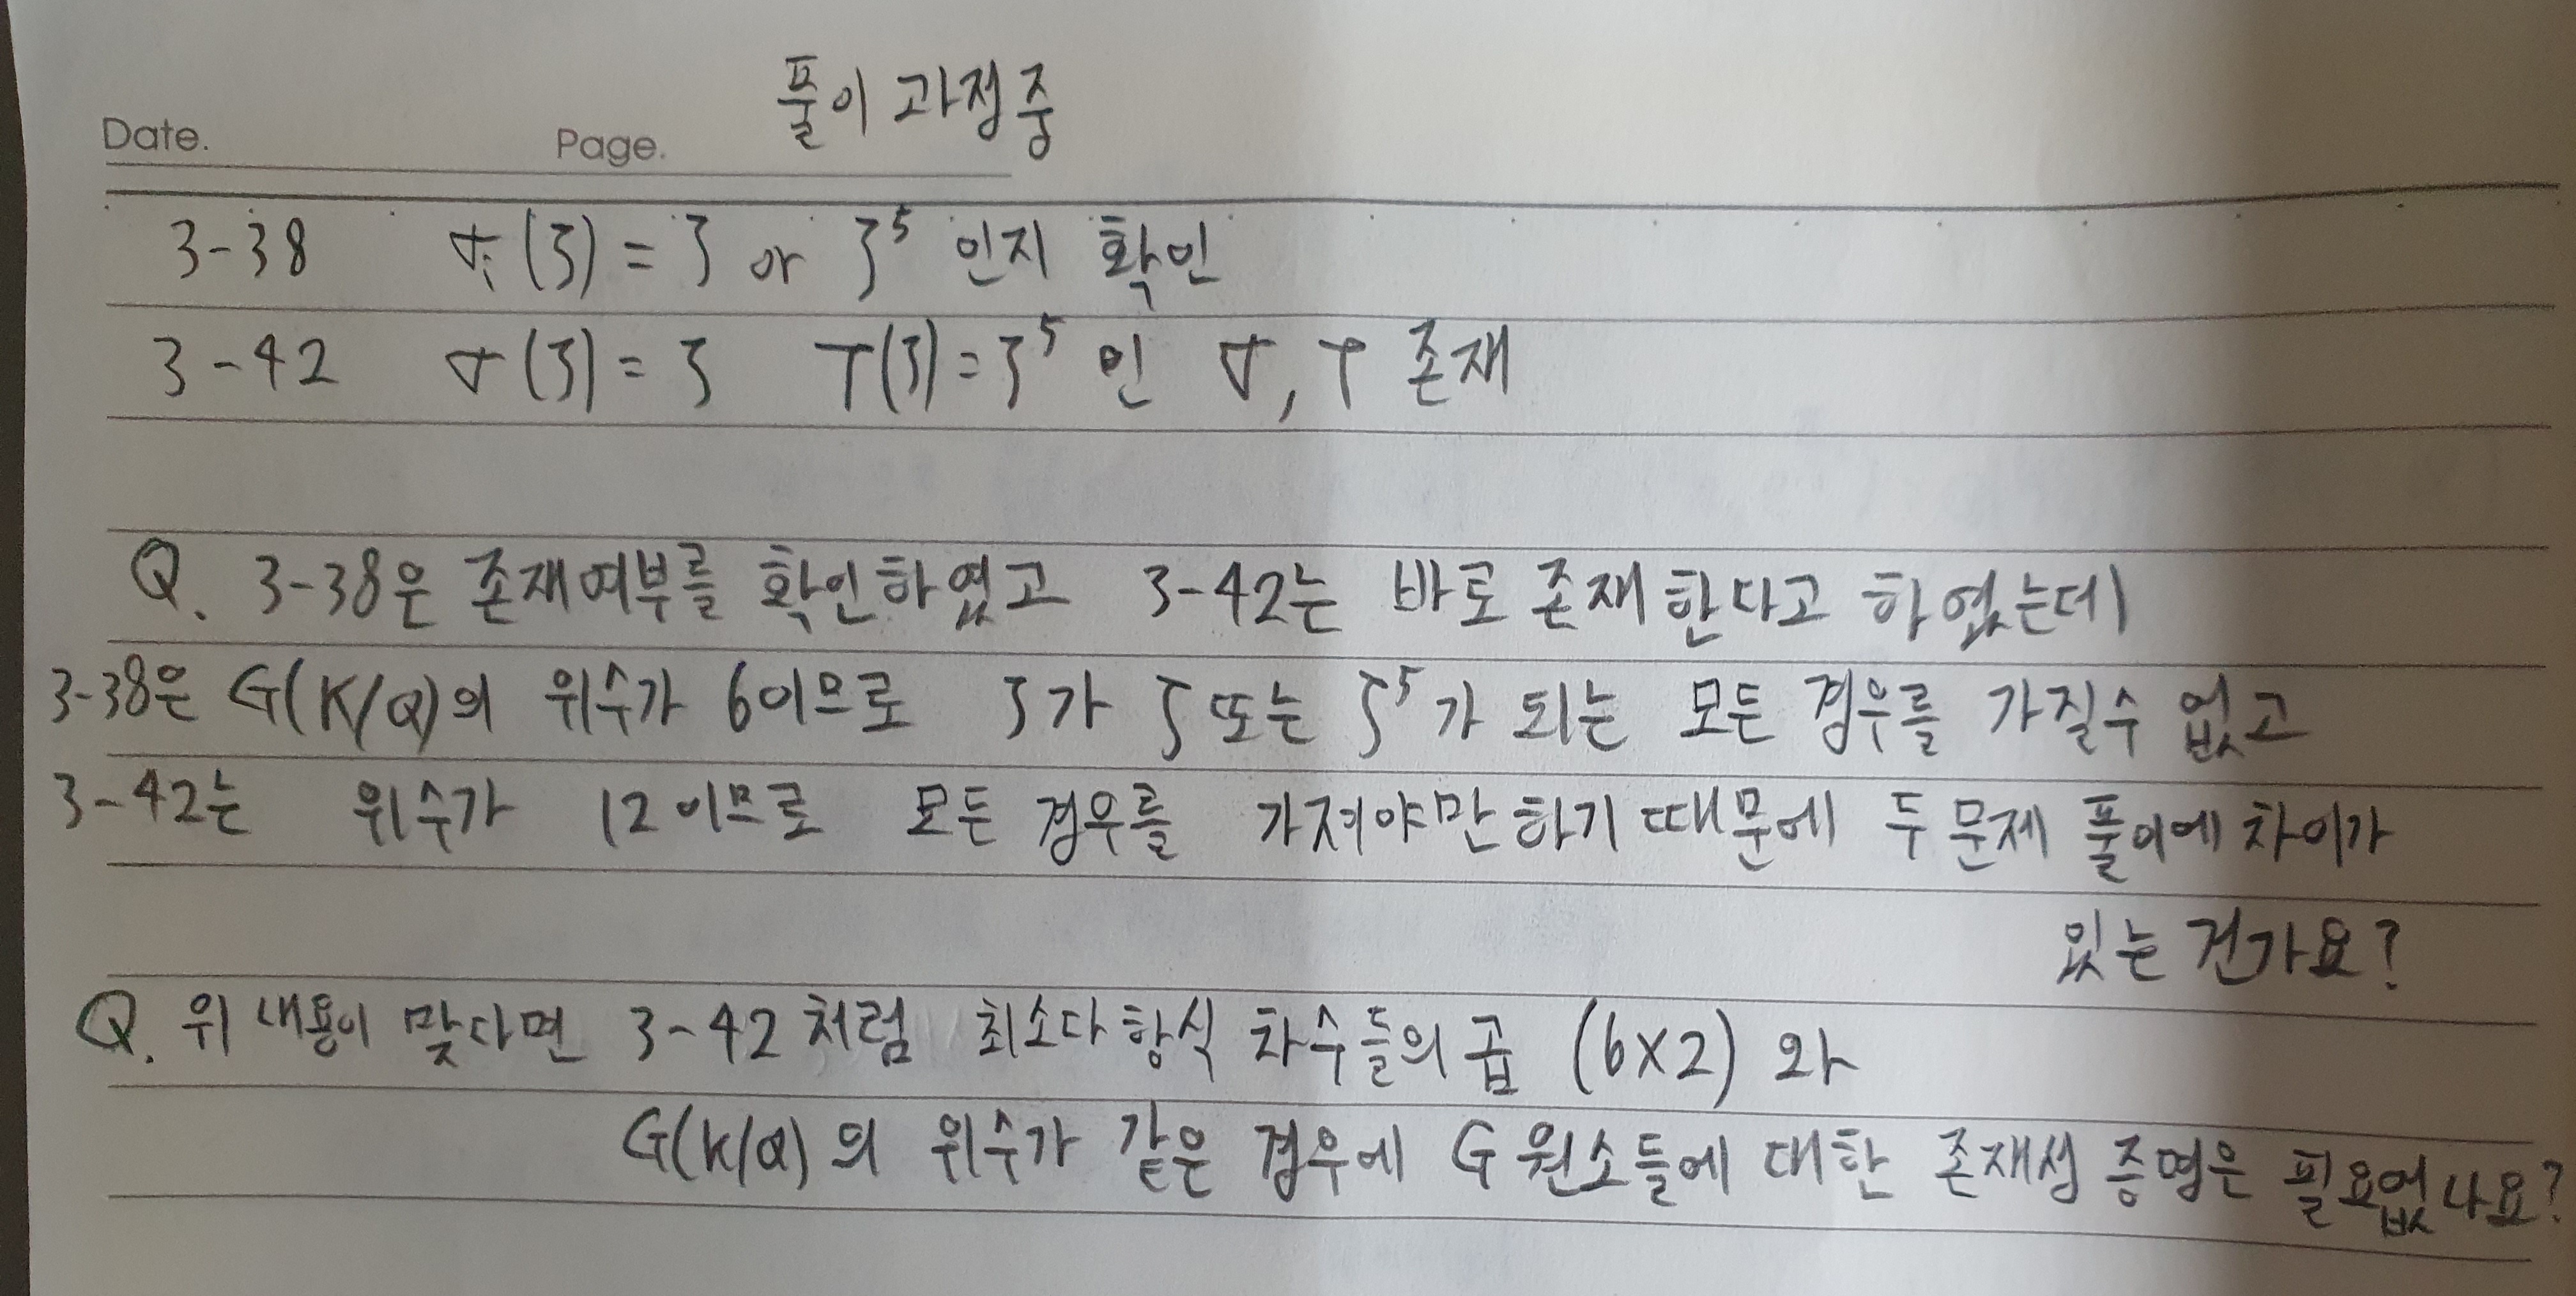 풀이 과정중
Date. Page.
3-38 σᵢ(ζ) = ζ or ζ⁵ 인지 확인
3-42 σ(ζ) = ζ τ(ζ) = ζ⁵ 인 σ, τ 존재
Q. 3-38은 존재여부를 확인하였고 3-42는 바로 존재한다고 하였는데
3-38은 G(K/Q)의 위수가 6이므로 ζ가 ζ 또는 ζ⁵가 되는 모든 경우를 가질수 없고
3-42는 위수가 12이므로 모든 경우를 가져야만하기 때문에 두 문제 풀이에 차이가
있는 건가요?
Q. 위 내용이 맞다면 3-42처럼 최소다항식 차수들의 곱 (6×2) 와
G(K/Q)의 위수가 같은 경우에 G 원소들에 대한 존재성 증명은 필요없나요?